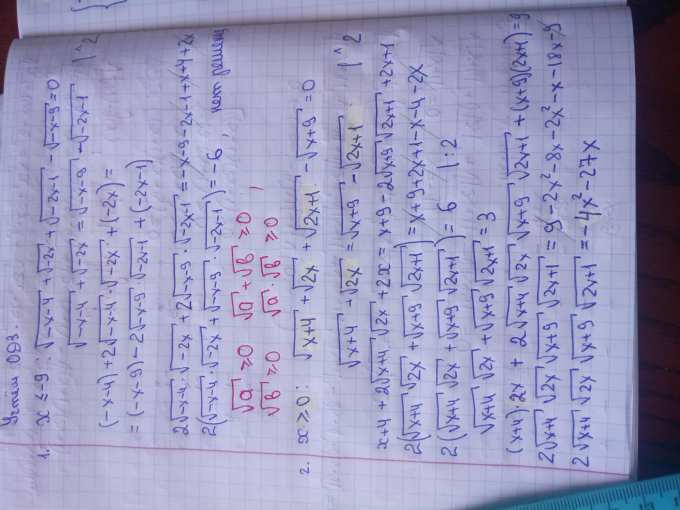 Учтём ОДЗ.
1. x ≤ -9 : √(-x-4) + √(-2x) + √(-2x-1) - √(-x-9) = 0
√(-x-4) + √(-2x) = √(-x-9) - √(-2x-1) | ^2
(-x-4) + 2√(-x-4) · √(-2x) + (-2x) =
= (-x-9) - 2√(-x-9) · √(-2x-1) + (-2x-1)
2√(-x-4) · √(-2x) + 2√(-x-9) · √(-2x-1) = -x-9-2x-1+x+4+2x
2(√(-x-4) · √(-2x) + √(-x-9) · √(-2x-1)) = -6, нет решений
√a ≥ 0 √a + √b ≥ 0
√b ≥ 0 √a · √b ≥ 0,
2. x ≥ 0 : √(x+4) + √(2x) + √(2x+1) - √(x+9) = 0
√(x+4) + √(2x) = √(x+9) - √(2x+1) | ^2
x+4 + 2√(x+4) √(2x) + 2x = x+9 - 2√(x+9) √(2x+1) + 2x+1
2(√(x+4) √(2x) + √(x+9) √(2x+1)) = x+9+2x+1-x-4-2x
2(√(x+4) √(2x) + √(x+9) √(2x+1)) = 6 | : 2
√(x+4) √(2x) + √(x+9) √(2x+1) = 3
(x+4) · 2x + 2√(x+4) √(2x) √(x+9) √(2x+1) + (x+9)(2x+1) = 9
2√(x+4) √(2x) √(x+9) √(2x+1) = 9 - 2x² - 8x - 2x² - x - 18x - 9
2√(x+4) √(2x) √(x+9) √(2x+1) = -4x² - 27x